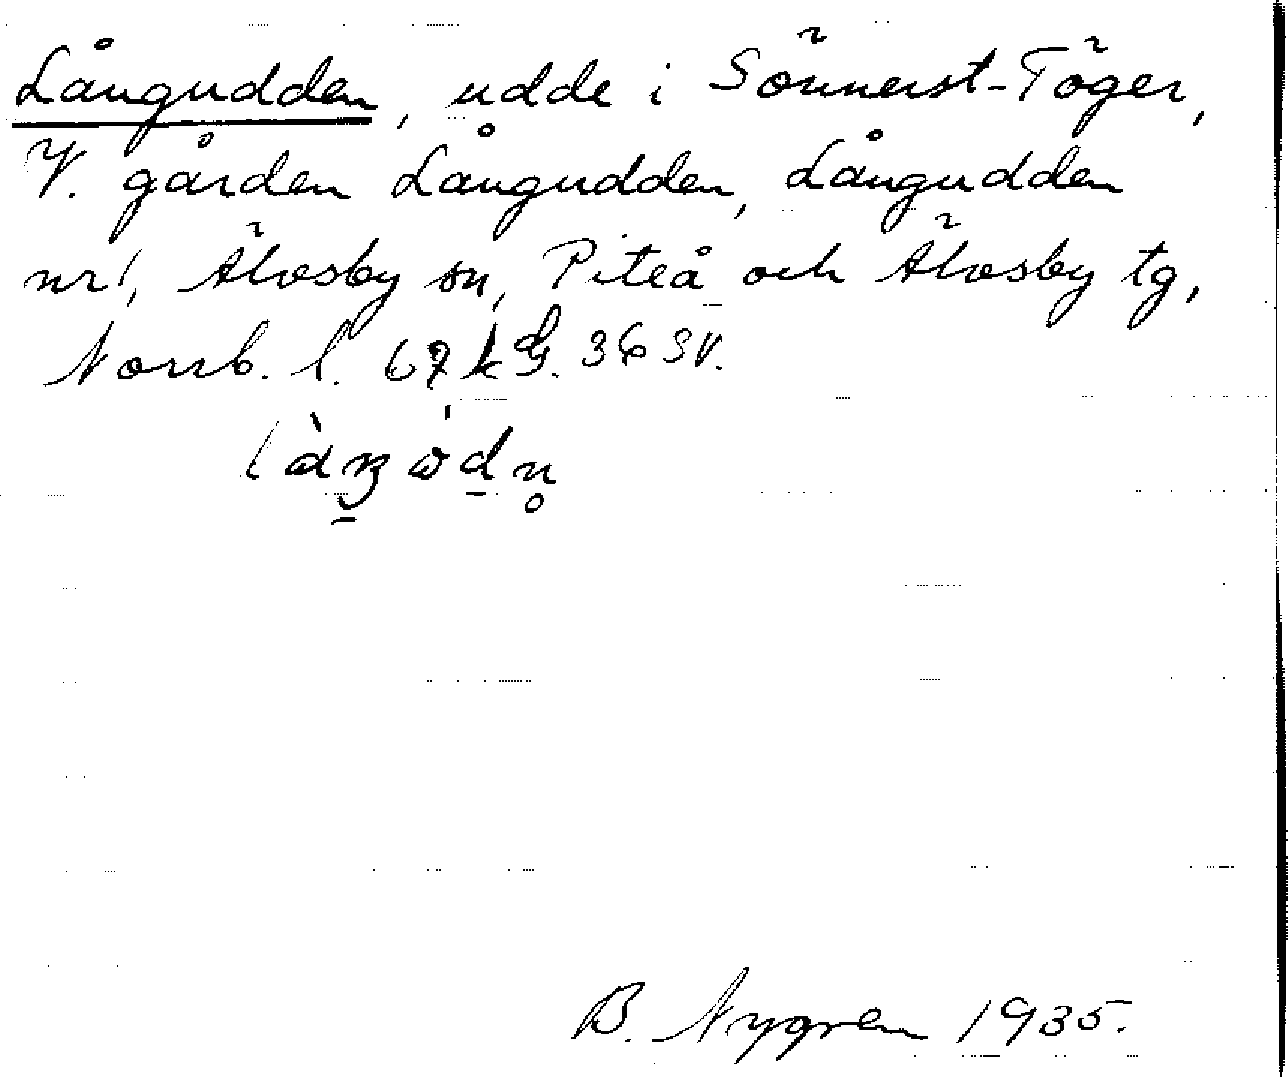 Långudden, udde i Sönnerst-Töger,
V. gården Långudden, Långudden
nr 1, Älvsby sn, Piteå och Älvsby tg,
Norrb. l. 67 k G. 36 SV.
B. Nygren 1935.